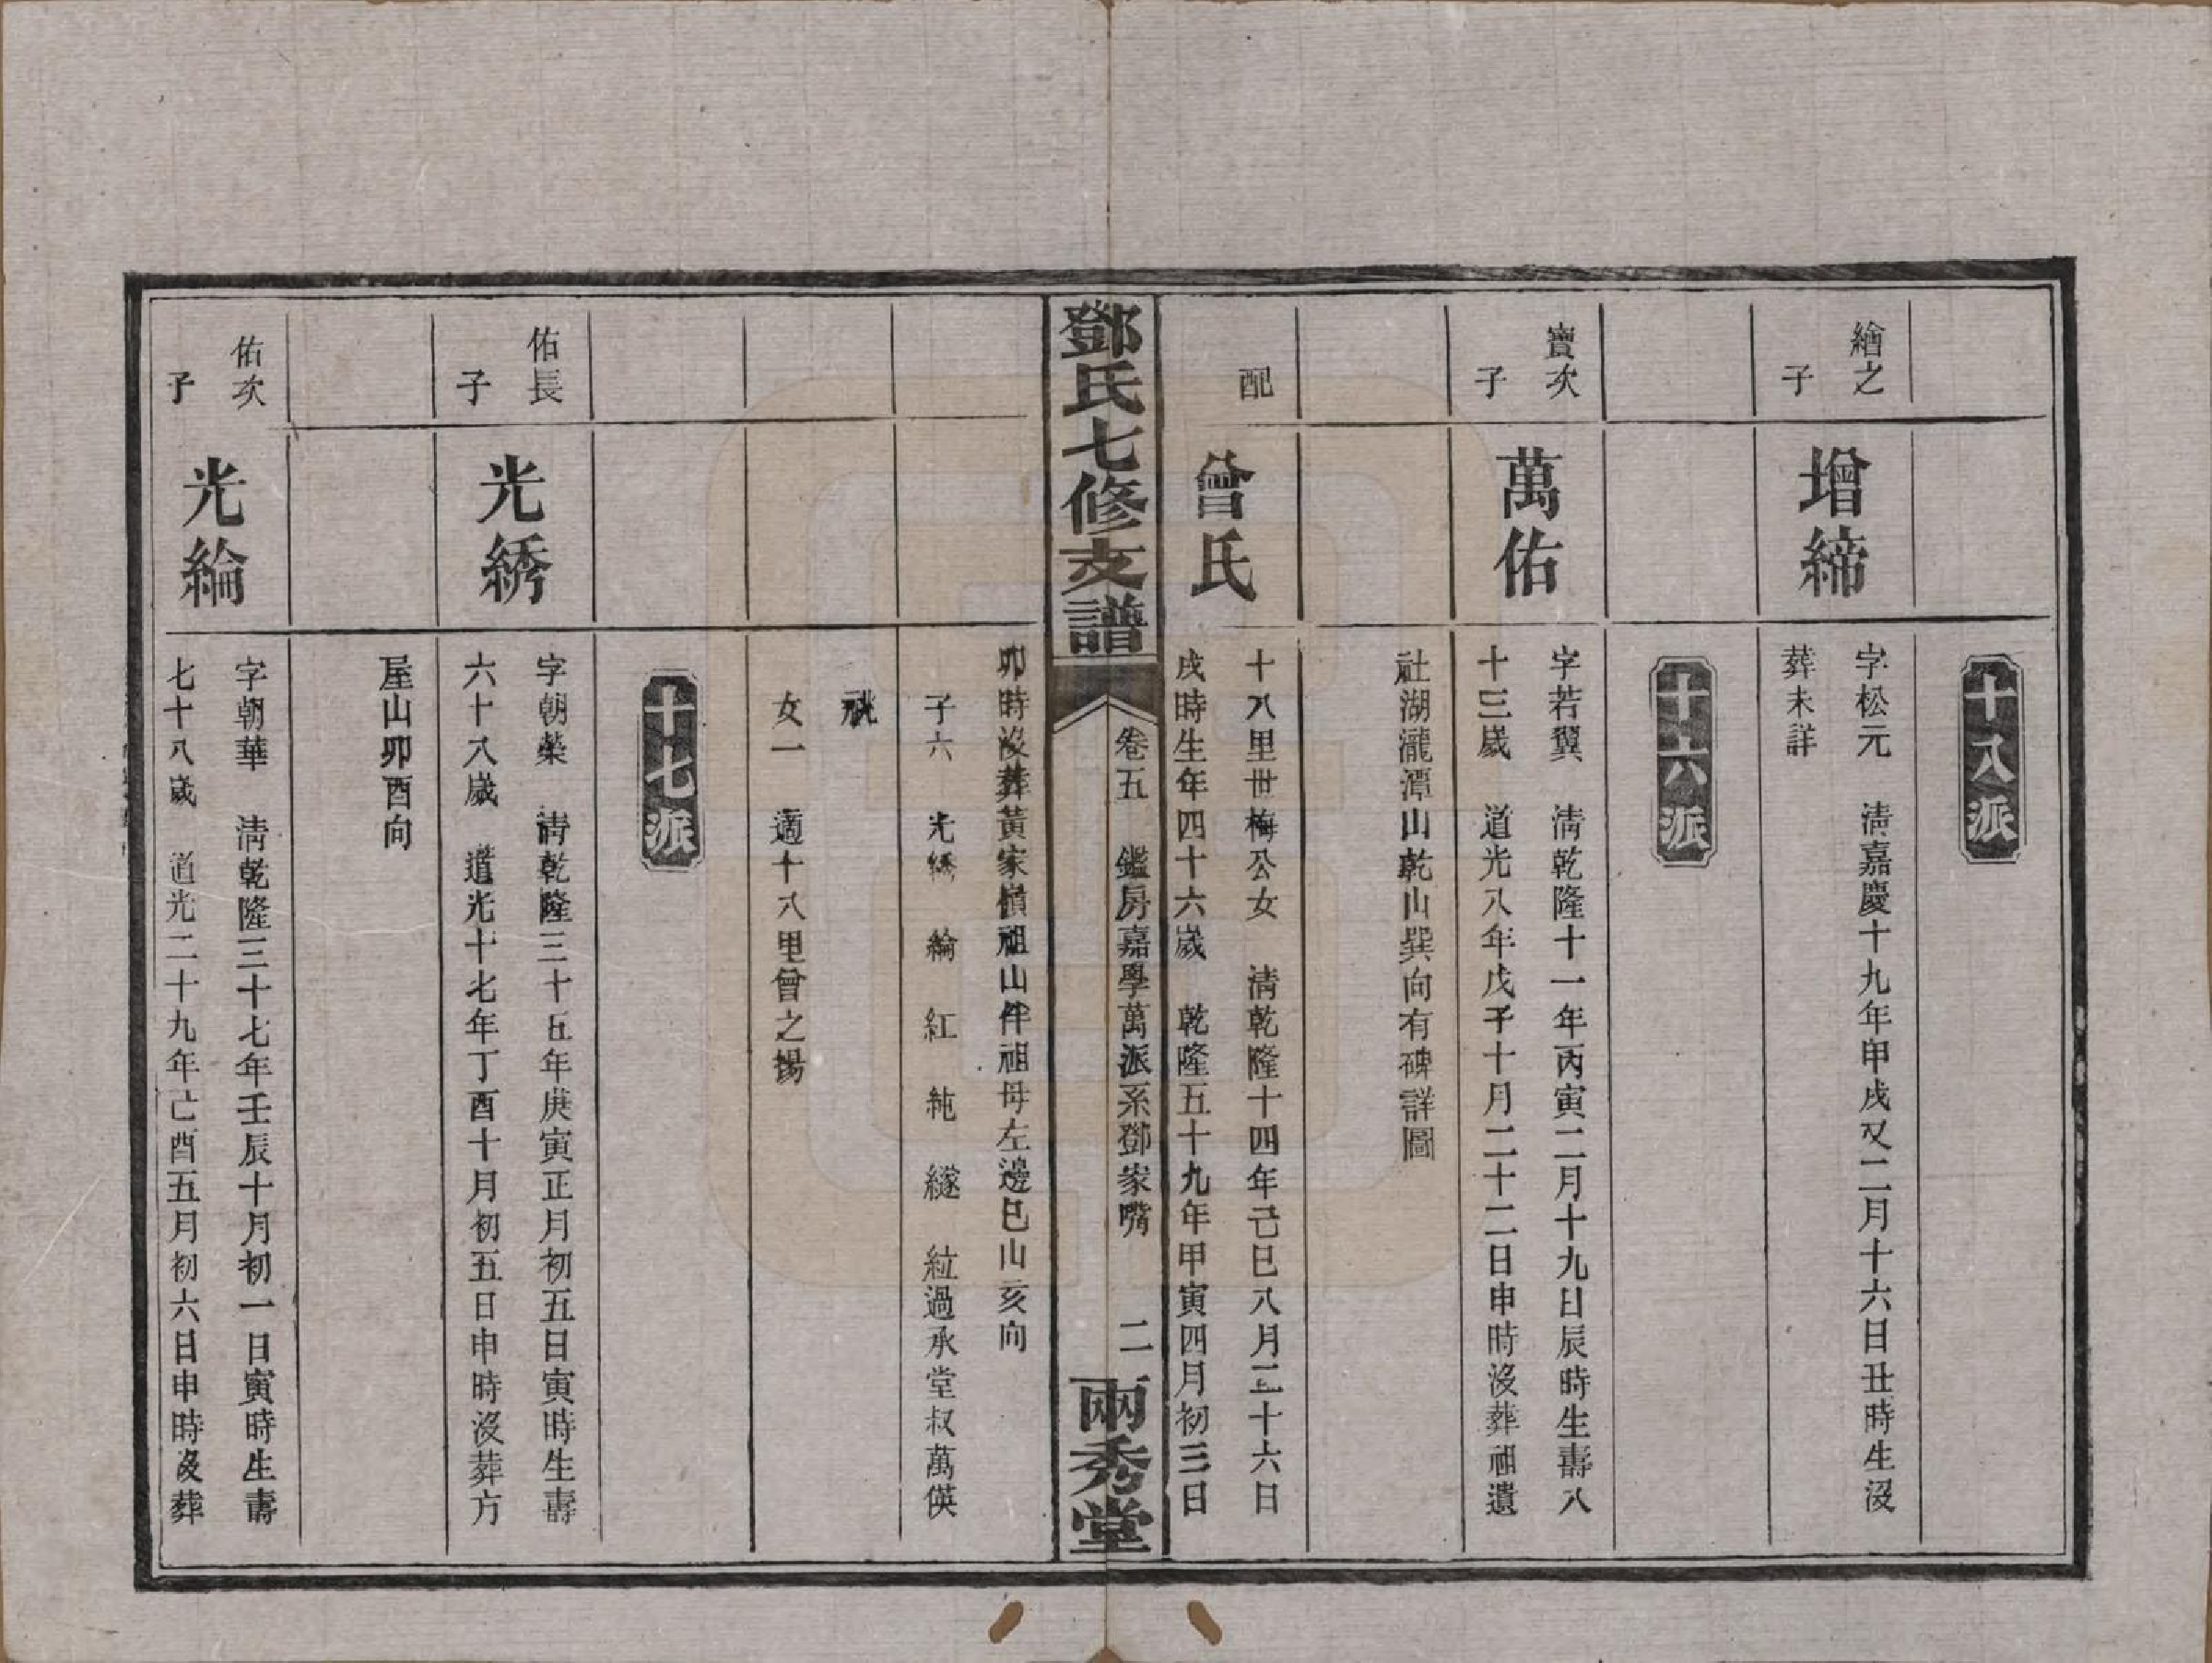 十八派
繪之
子
增締
字松元　清嘉慶十九年甲戌又二月十六日丑時生沒
葬未詳
十六派
寶次
子
萬佑
字若翼　清乾隆十一年丙寅二月十九日辰時生壽八
十三歲　道光八年戊子十月二十二日申時沒葬祖遺
社湖瀧潭山乾山巽向有碑詳圖
配
曾氏
十八里世梅公女　清乾隆十四年己巳八月二十六日
戌時生年四十六歲　乾隆五十九年甲寅四月初三日
鄧氏七修支譜
卷五　鑑房嘉學萬派系鄧家嘴　二
兩秀堂
卯時沒葬黃家嶺祖山伴祖母左邊巳山亥向
子六　光綉　綸　紅　純　繸　紭過承堂叔萬傼
祧
女一　適十八里曾之揚
十七派
佑長
子
光綉
字朝榮　清乾隆三十五年庚寅正月初五日寅時生壽
六十八歲　道光十七年丁酉十月初五日申時沒葬方
屋山卯酉向
佑次
子
光綸
字朝華　清乾隆三十七年壬辰十月初一日寅時生壽
七十八歲　道光二十九年己酉五月初六日申時沒葬